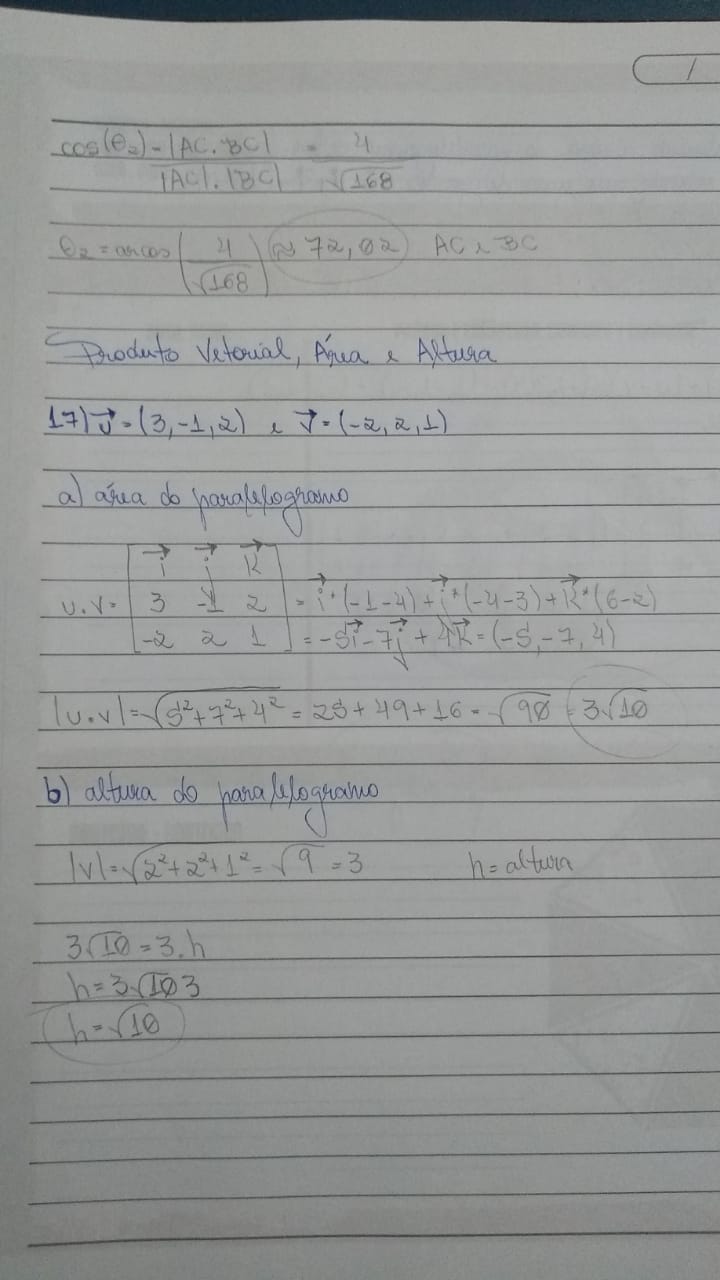 1
cos(θ₂) = |AC.BC| / |AC|.|BC| = 4/√168
θ₂ = arcos(4/√168) ≈ 72,02 AC e BC
Produto Vetorial, Área e Altura
17) u⃗ = (3,-1,2) e v⃗ = (-2,2,1)
a) área do paralelogramo
i⃗ j⃗ k⃗
u.v = 3 -1 2 = i⃗*(-1-4) + j⃗*(-4-3) + k⃗*(6-2)
-2 2 1 = -5i⃗ - 7j⃗ + 4k⃗ = (-5,-7,4)
|u.v| = √5²+7²+4² = 25+49+16 = √90 = 3√10
b) altura do paralelogramo
|v| = √2²+2²+1² = √9 = 3 h = altura
3√10 = 3.h
h = 3√10 3
h = √10